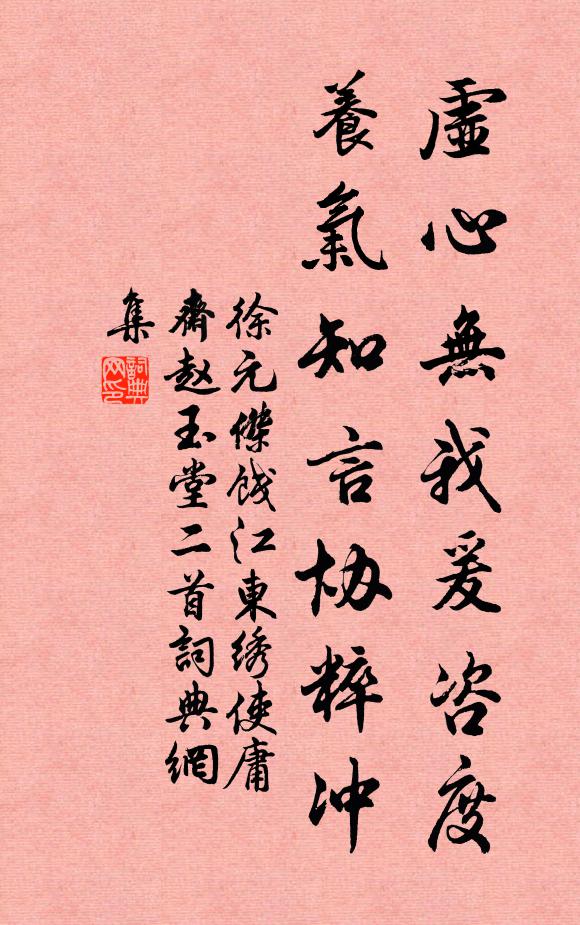 虛心無我爰咨度
養氣知言协粹冲
徐元傑餞江東绣使庸
齋赵玉堂二首詞典網
集
詞典
网印